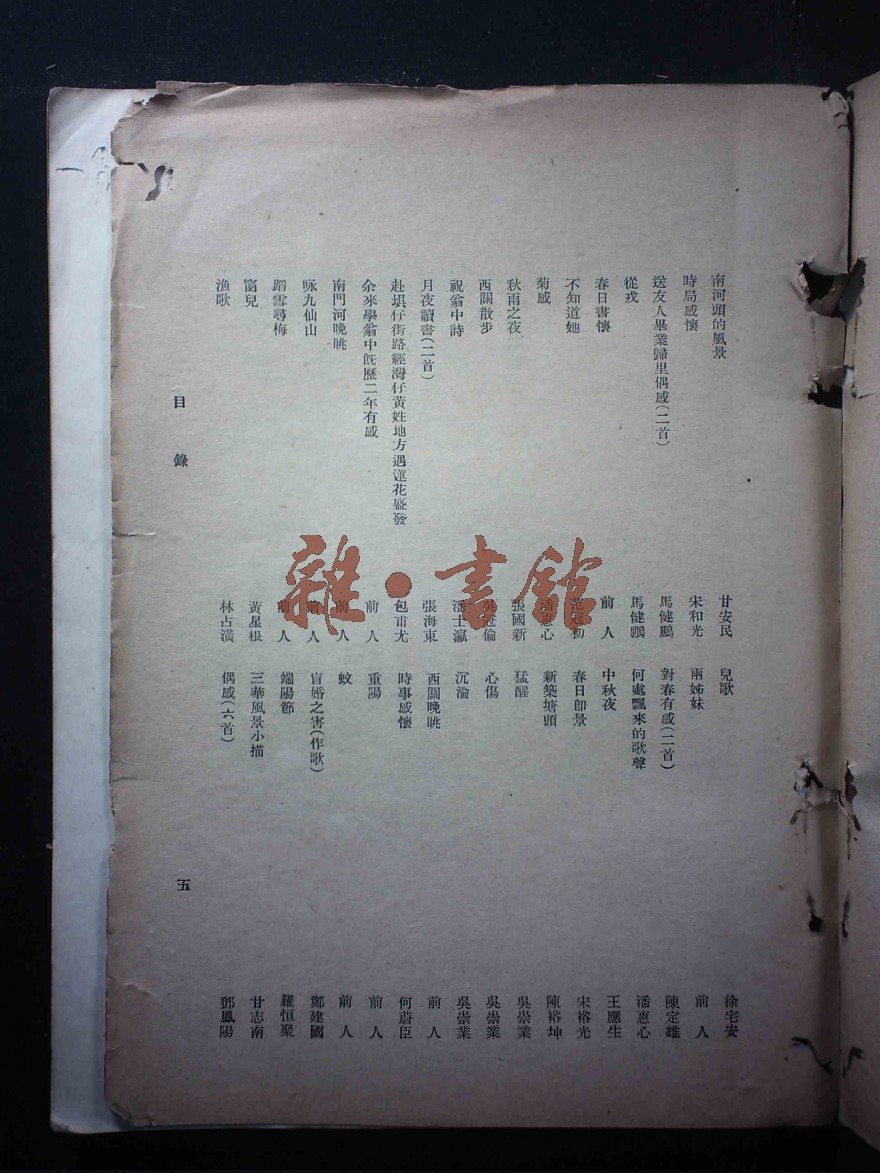 南河頭的風景 甘安民
時局感懷 宋和光
送友人畢業歸里偶感(二首) 馬健鵬
從戎 馬健鵬
春日書懷 前人
不知道她 冠初
菊感 惠心
秋雨之夜 張國新
西關散步 倫
祝翁中詩 潘士瀛
月夜讀書(二首) 張海東
赴垻仔街路經灣仔黃姓地方遇蓮花盛發 包甫尤
余來學翁中旣歷二年有感 前人
南門河晚眺 前人
咏九仙山 前人
踏雪尋梅 前人
窗兒 黃星根
漁歌 林占潢
兒歌 徐宅安
兩姊妹 前人
對春有感(二首) 陳定雄
何處飄來的歌聲 潘惠心
中秋夜 王應生
春日卽景 宋裕光
新築塘頭 陳裕坤
猛醒 吳崇業
心傷 吳崇業
沉淪 吳崇業
西關晚眺 前人
時事感懷 何蔚臣
重陽 前人
蚊 前人
盲婚之害(作歌) 鄭建國
端陽節 羅恒聚
三華風景小描 甘志南
偶感(六首) 鄧鳳陽
目錄
五
雜·書館